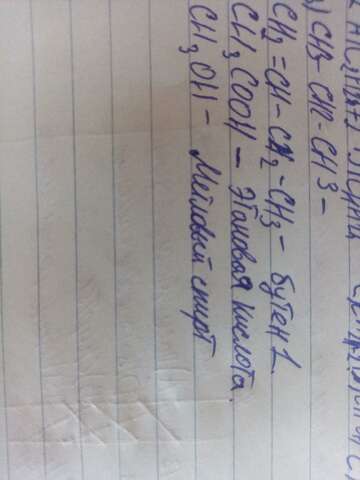 ) CH3- CH-CH3 -
CH2=CH-CH2-CH3 - бутен 1.
CH3COOH - Этановая кислота.
CH3OH - Метиловый спирт